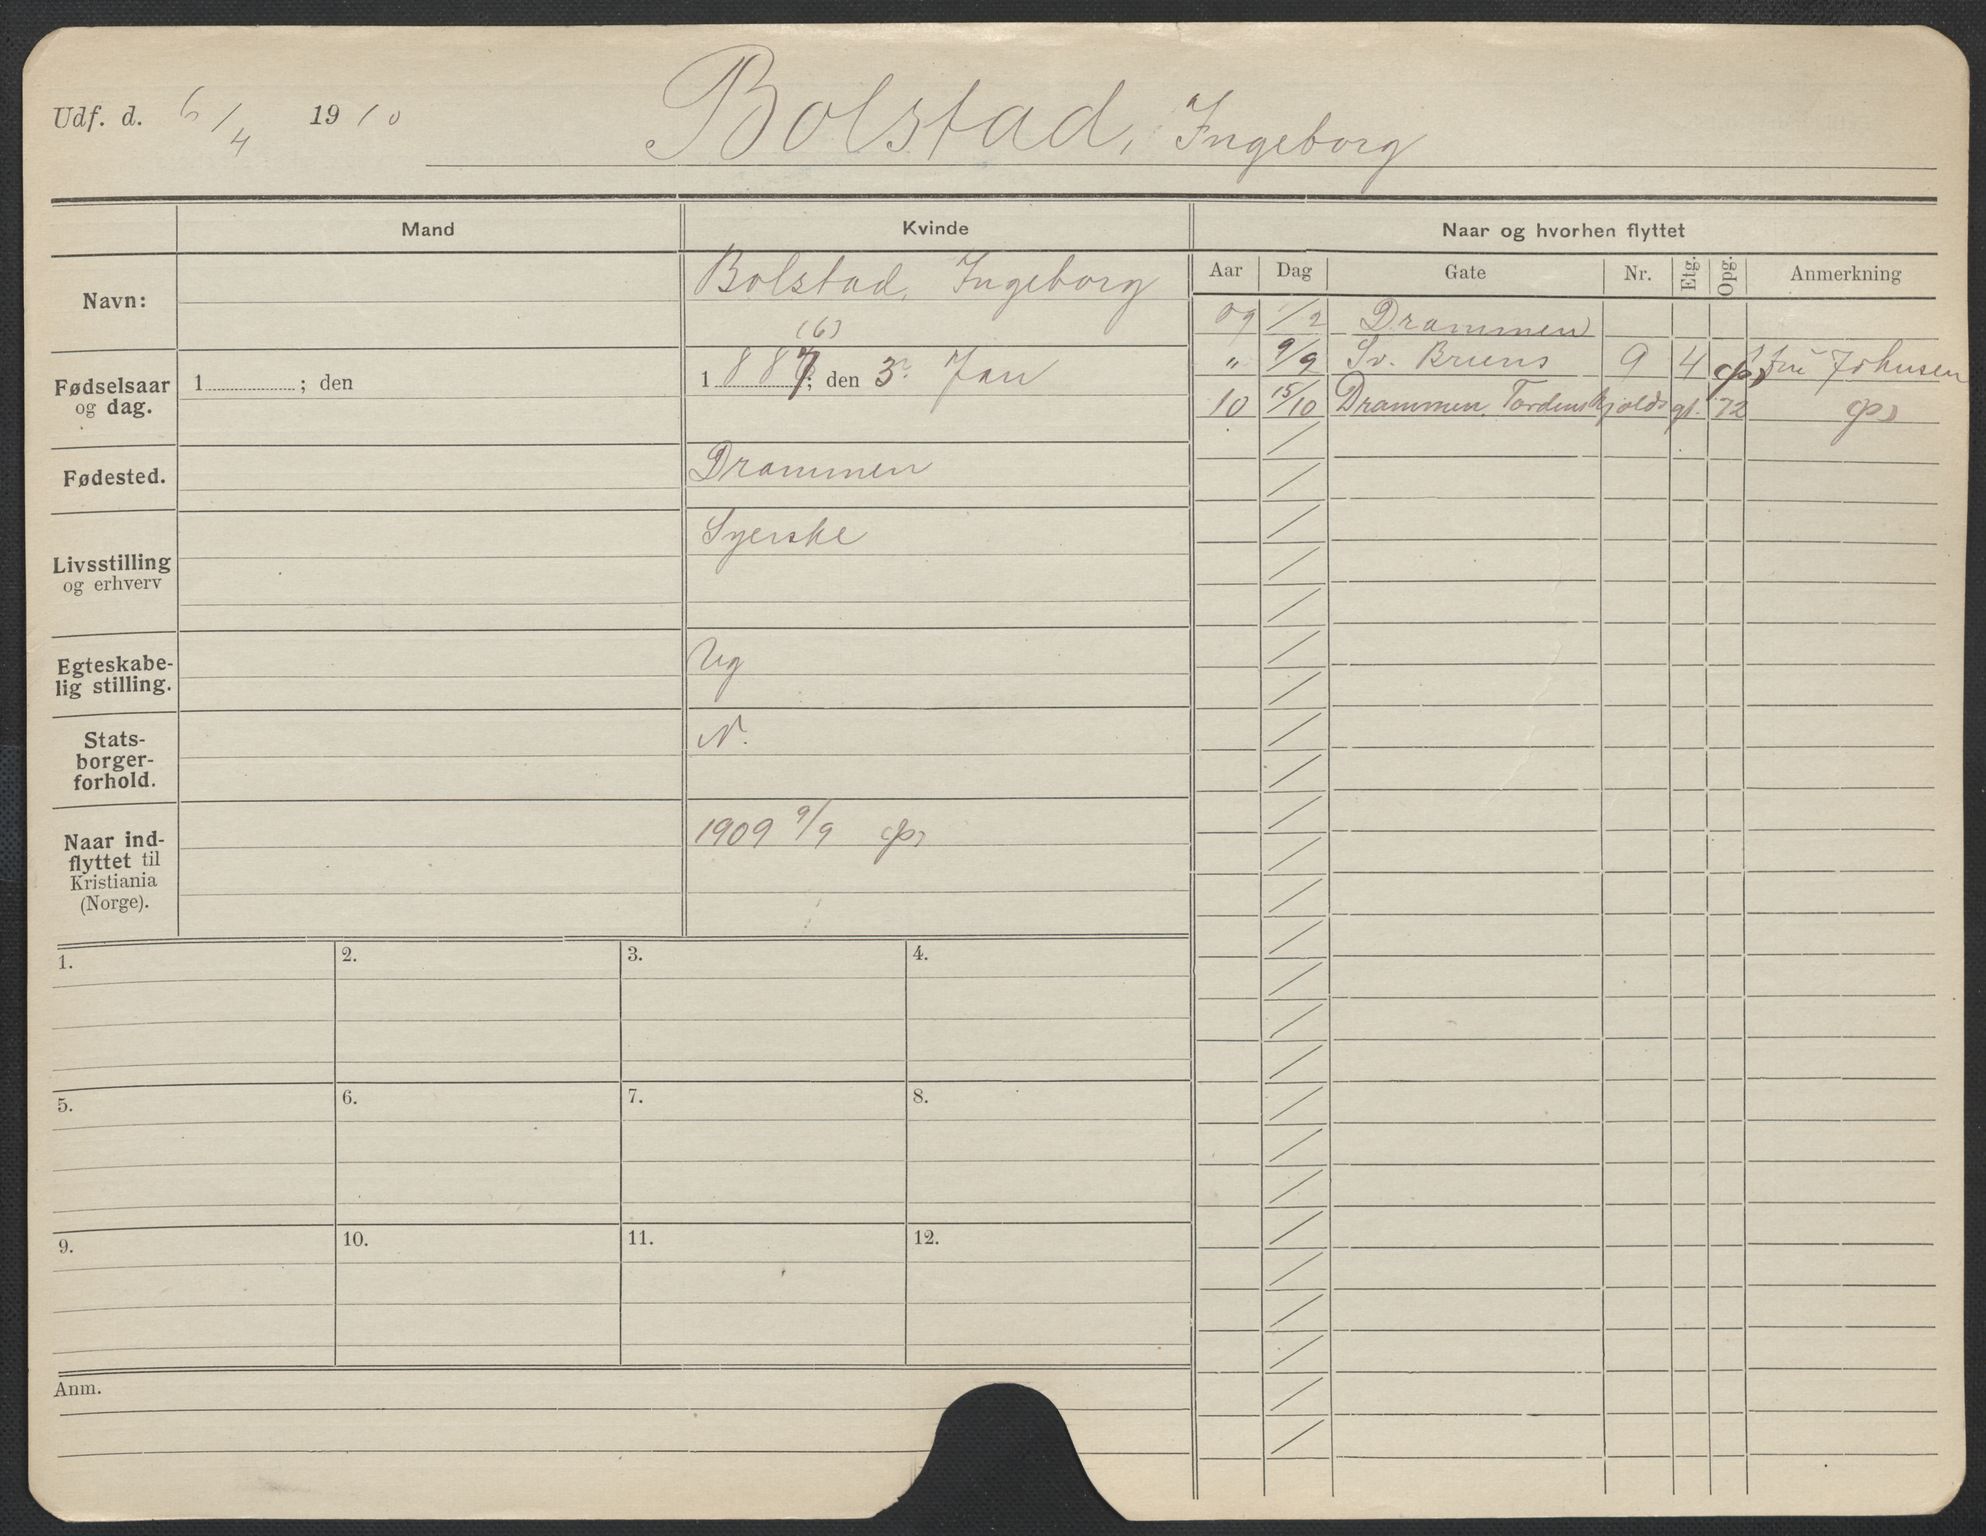 Udf. d. 6/4 1910 Bolstad, Ingeborg
Mand Kvinde Naar og hvorhen flyttet
Aar Dag Gate Nr. Etg. Opg. Anmerkning
Navn: Bolstad, Ingeborg
(6)
Fødselsaar og dag. 1 ; den 1 887; den 3. Jan
Fødested. Drammen
Livsstilling og erhverv Syerske
Egteskabe-
lig stilling. Ug
Stats-
borger-
forhold. N.
Naar ind-
flyttet til
Kristiania
(Norge). 1909 9/9
09 1/2 Drammen
" 9/9 Sv. Bruns 9 4 Johnsen
10 15/10 Drammen, Tordenskjolds gt. 72
1. 2. 3. 4.
5. 6. 7. 8.
9. 10. 11. 12.
Anm.